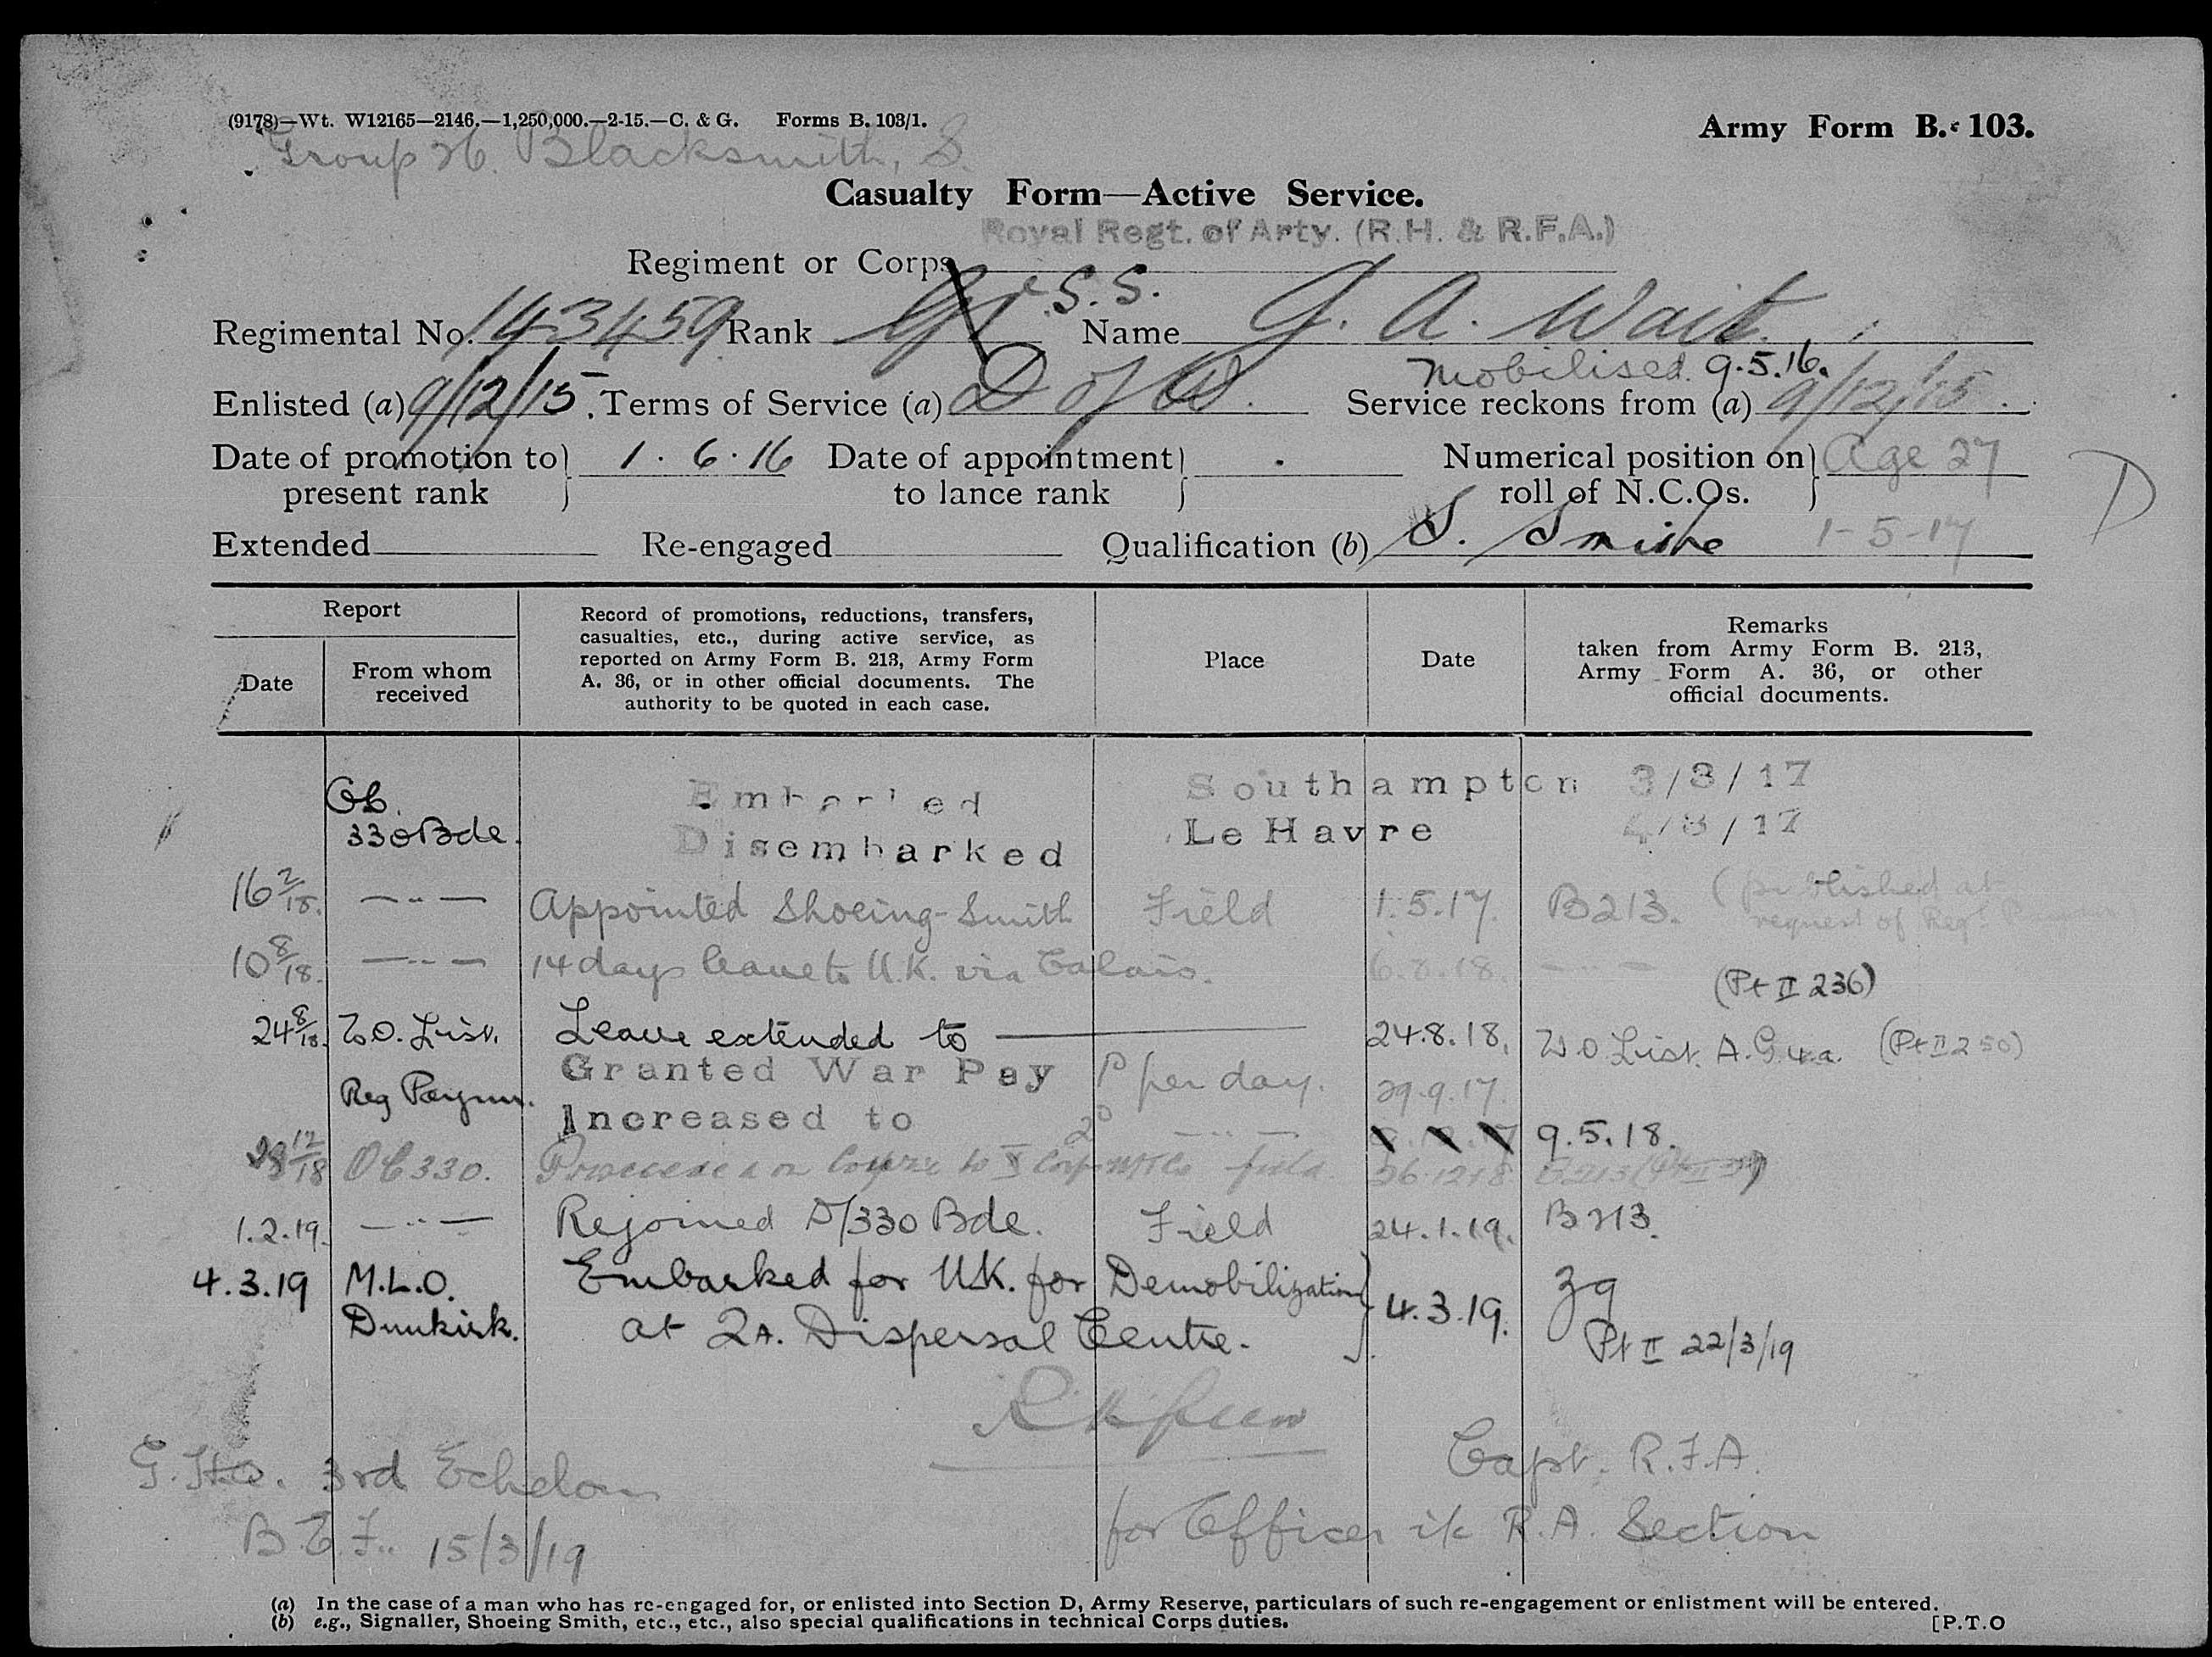 (9178)—Wt. W12165—2146.—1,250,000.—2-15.—C. & G. Forms B. 103/1.
Army Form B. 103.
Group 26. Blacksmith, S.
Casualty Form—Active Service.
Royal Regt. of Arty. (R.H. & R.F.A.)
Regiment or Corps
Regimental No. 143459 Rank Gr S.S. Name G. A. Wait.
Mobilised 9.5.16.
Enlisted (a) 9/12/15. Terms of Service (a) D of W. Service reckons from (a) 9/12/15.
Date of promotion to present rank 1.6.16 Date of appointment to lance rank Numerical position on roll of N.C.Os. Age 27
D
Extended Re-engaged Qualification (b) S. Smith 1-5-17
Report
Date
From whom received
Record of promotions, reductions, transfers,
casualties, etc., during active service, as
reported on Army Form B. 213, Army Form
A. 36, or in other official documents. The
authority to be quoted in each case.
Place
Date
Remarks
taken from Army Form B. 213,
Army Form A. 36, or other
official documents.
Embarked Southampton 3/3/17
330 Bde. Disembarked Le Havre 4/3/17
16 2/18. —"— Appointed Shoeing-Smith Field 1.5.17. B213. (published at
request of Regt.
10 8/18. —"— 14 days leave to U.K. via Calais. 6.8.18. —"—
(Pt II 236)
24 8/18. W.O. List. Leave extended to 24.8.18. W.O List. A.G.4.a. (Pt II 250)
Reg Paymr. Granted War Pay 1d per day. 29.9.17.
Increased to 2d —"— 9.5.18.
28 12/18 OC 330. Proceeded on course to X Corps field 26.12.18 B213
1.2.19. —"— Rejoined D/330 Bde. Field 24.1.19. B213.
4.3.19 M.L.O. Dunkirk. Embarked for U.K. for Demobilization
at 2A. Dispersal Centre. 4.3.19.
Pt II 22/3/19
G.H.Q. 3rd Echelon Capt. R.F.A.
B.E.F. 15/3/19 for Officer i/c R.A. Section
(a) In the case of a man who has re-engaged for, or enlisted into Section D, Army Reserve, particulars of such re-engagement or enlistment will be entered.
(b) e.g., Signaller, Shoeing Smith, etc., etc., also special qualifications in technical Corps duties.
[P.T.O